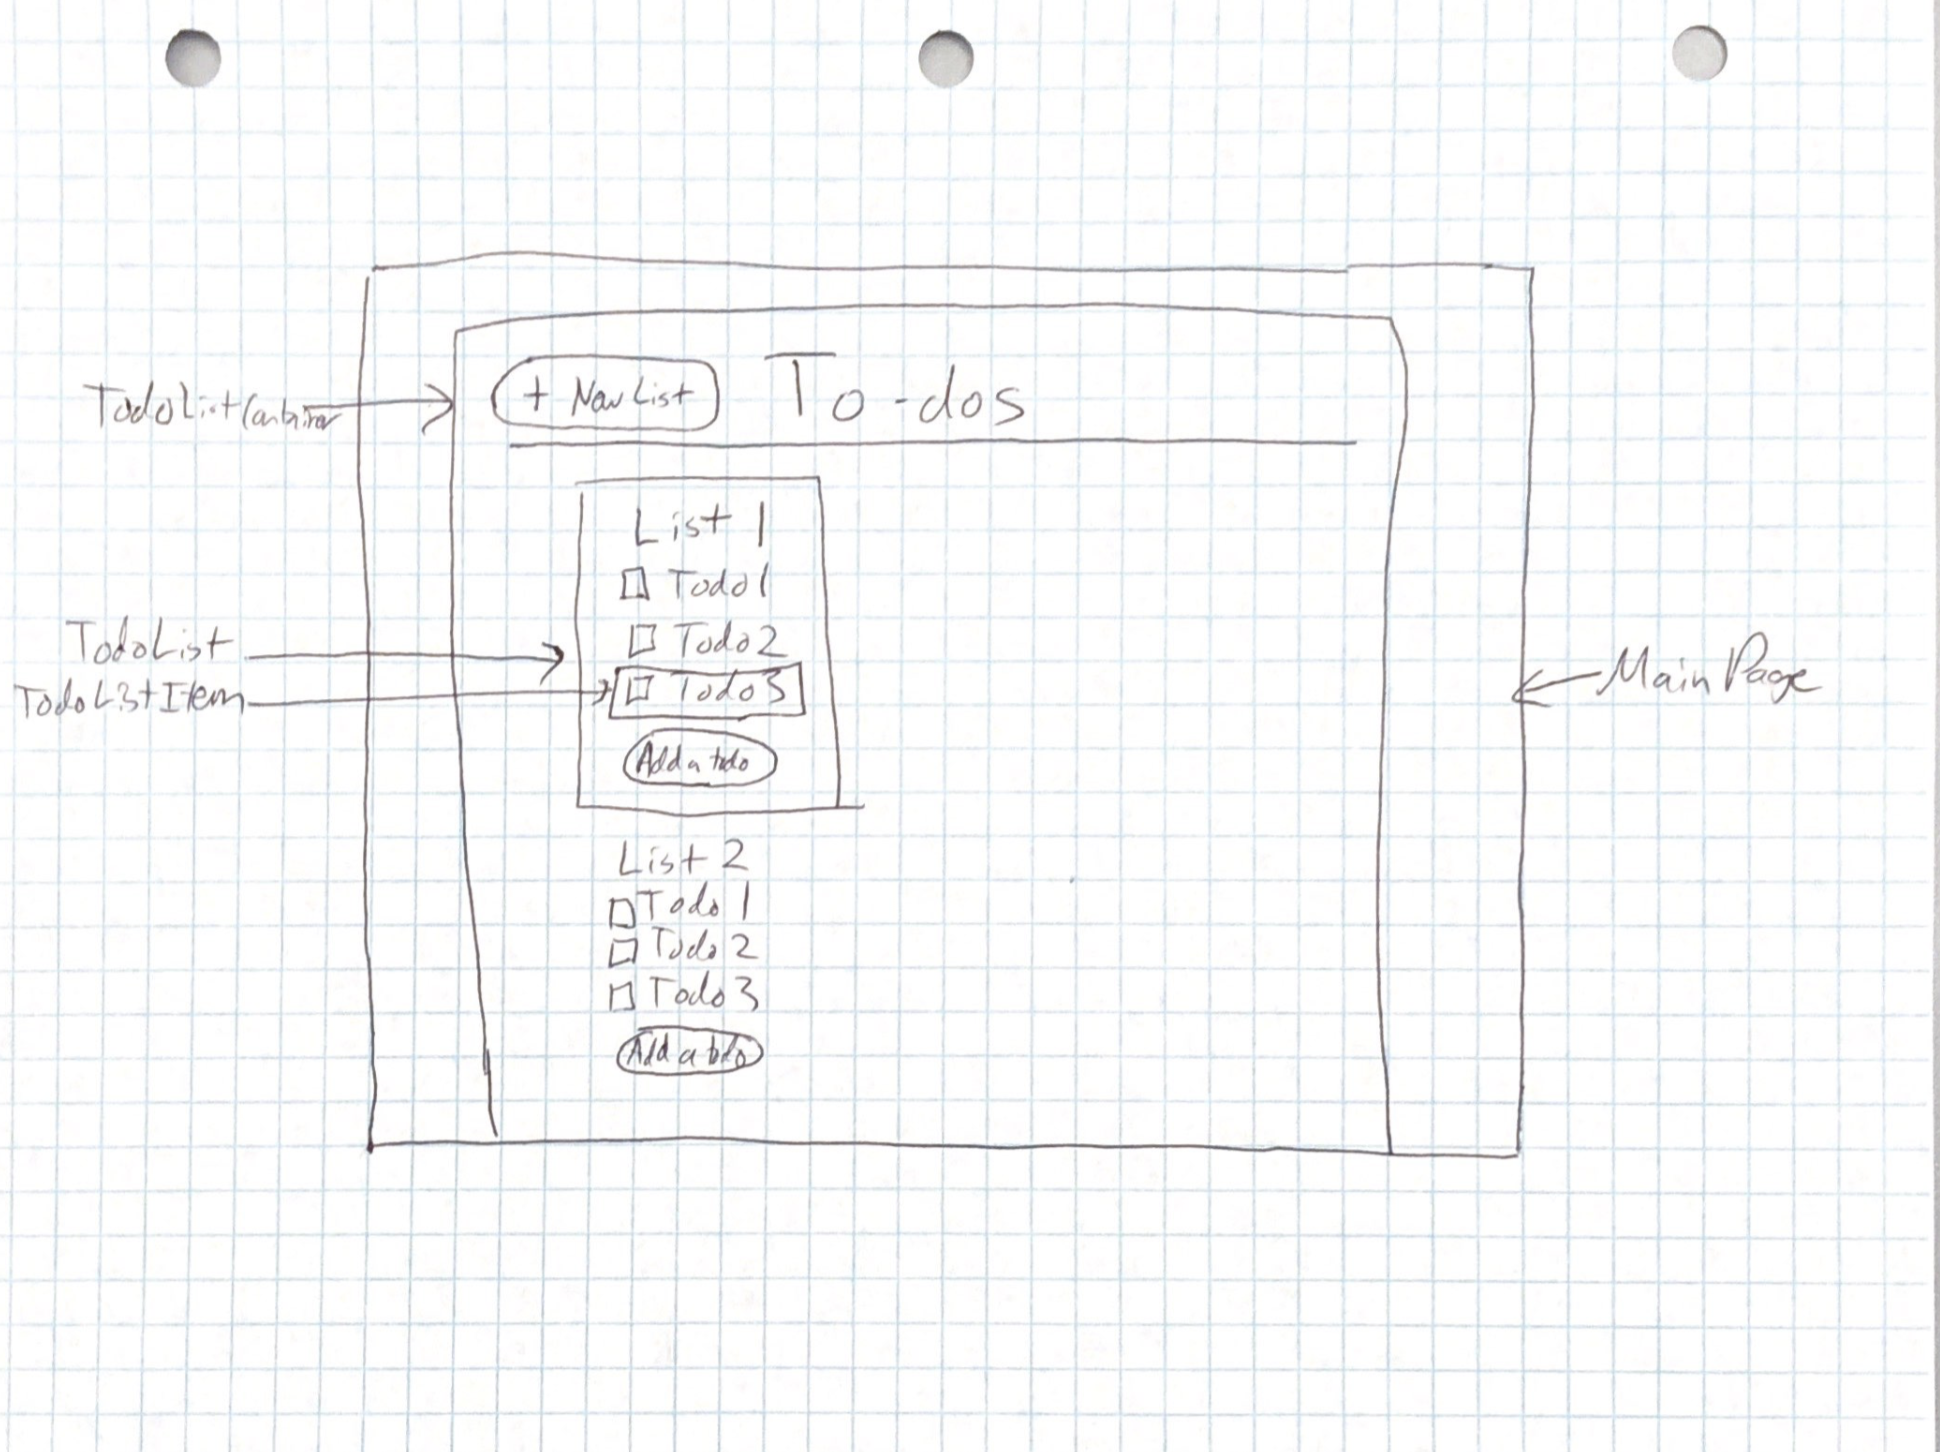 TodoListContainer
+ New List
To-dos
List 1
Todo 1
Todo 2
TodoList
TodoListItem
Todo 3
Main Page
Add a todo
List 2
Todo 1
Todo 2
Todo 3
Add a todo